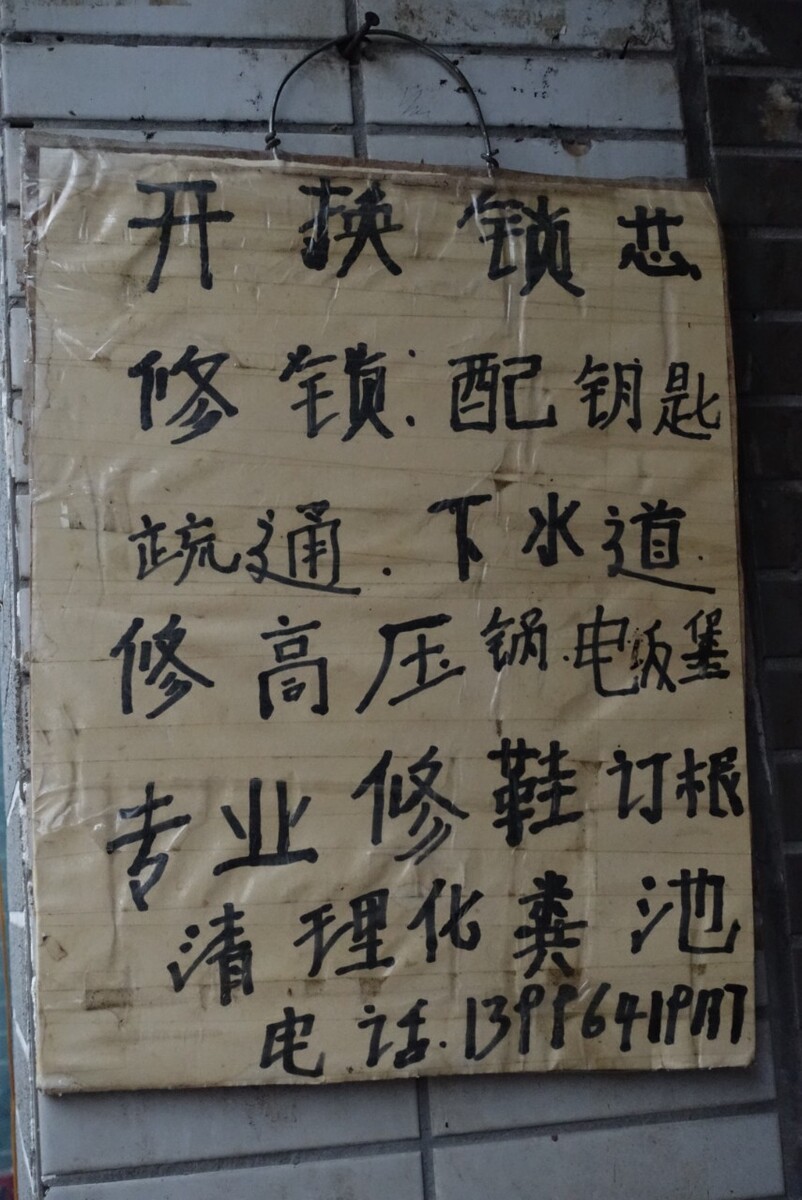 开换锁芯
修锁:配钥匙
疏通.下水道.
修高压锅.电饭煲
专业修鞋订根
清理化粪池
电话.